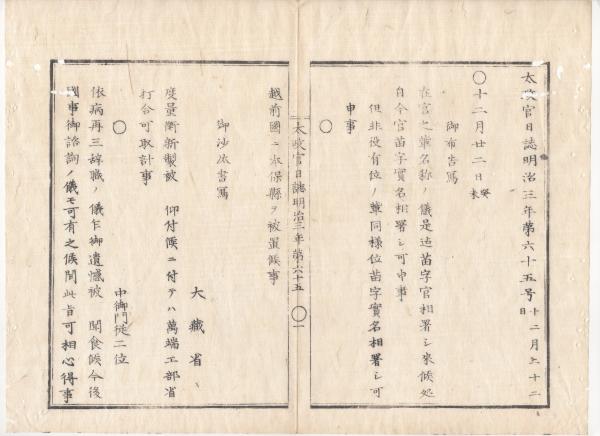 太政官日誌明治三年第六十五号 十二月上十二日
〇十二月廿二日 癸未
御布告写
在官之輩名称ノ儀是迄苗字官相署シ来候処
自今官苗字実名相署シ可申事
但非役有位ノ輩同様位苗字実名相署シ可
申事
〇
太政官日誌明治三年第六十五 〇一
越前國ニ本保縣ヲ被置候事
御沙汰書写
大蔵省
度量衡新製被 仰付候ニ付テハ萬端工部省
打合可取計事
〇
中御門従二位
依病再三辞職ノ儀乍御遺憾被 聞食候今後
國事御諮詢ノ儀モ可有之候間此旨可相心得事